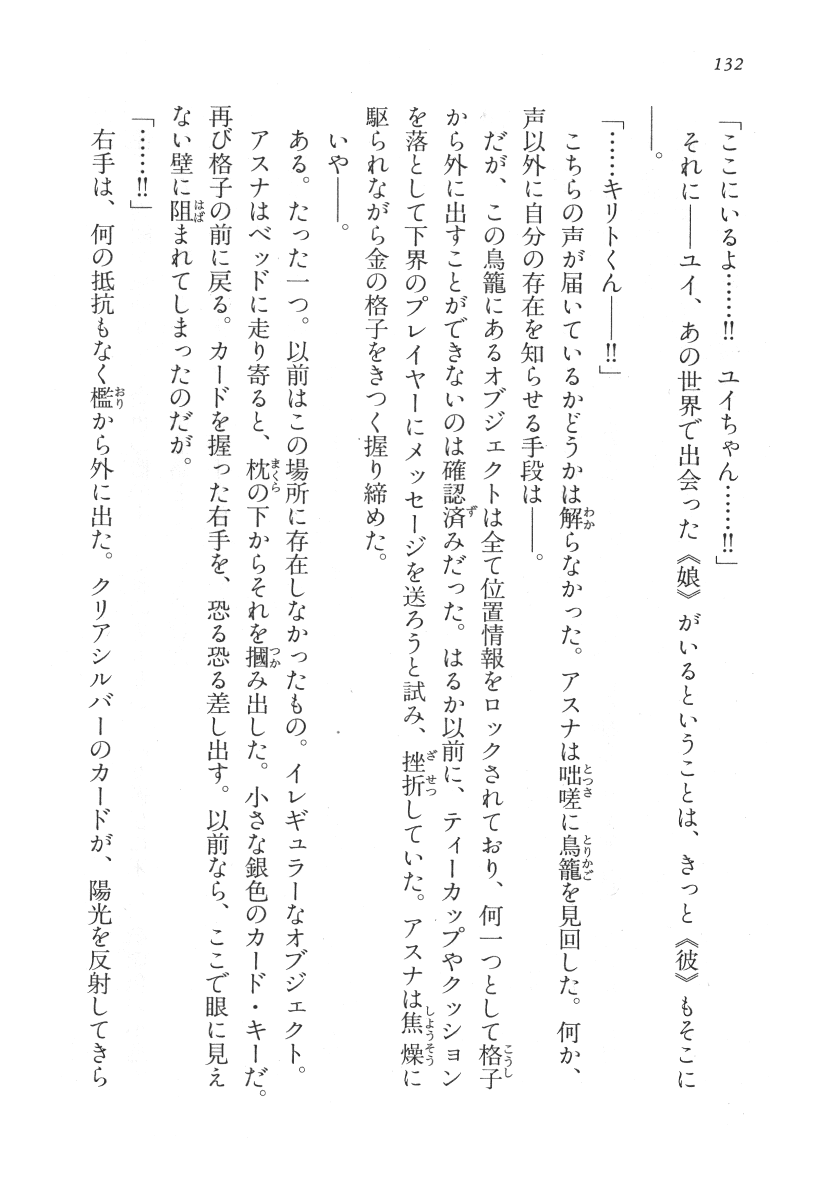 132
「ここにいるよ……!!　ユイちゃん……!!」
それに――ユイ、あの世界で出会った《娘》がいるということは、きっと《彼》もそこに
――。
「……キリトくん――!!」
こちらの声が届いているかどうかは解らなかった。アスナは咄嗟に鳥籠を見回した。何か、
声以外に自分の存在を知らせる手段は――。
だが、この鳥籠にあるオブジェクトは全て位置情報をロックされており、何一つとして格子
から外に出すことができないのは確認済みだった。はるか以前に、ティーカップやクッション
を落として下界のプレイヤーにメッセージを送ろうと試み、挫折していた。アスナは焦燥に
駆られながら金の格子をきつく握り締めた。
いや――。
ある。たった一つ。以前はこの場所に存在しなかったもの。イレギュラーなオブジェクト。
アスナはベッドに走り寄ると、枕の下からそれを摑み出した。小さな銀色のカード・キーだ。
再び格子の前に戻る。カードを握った右手を、恐る恐る差し出す。以前なら、ここで眼に見え
ない壁に阻まれてしまったのだが。
「……!!」
右手は、何の抵抗もなく檻から外に出た。クリアシルバーのカードが、陽光を反射してきら